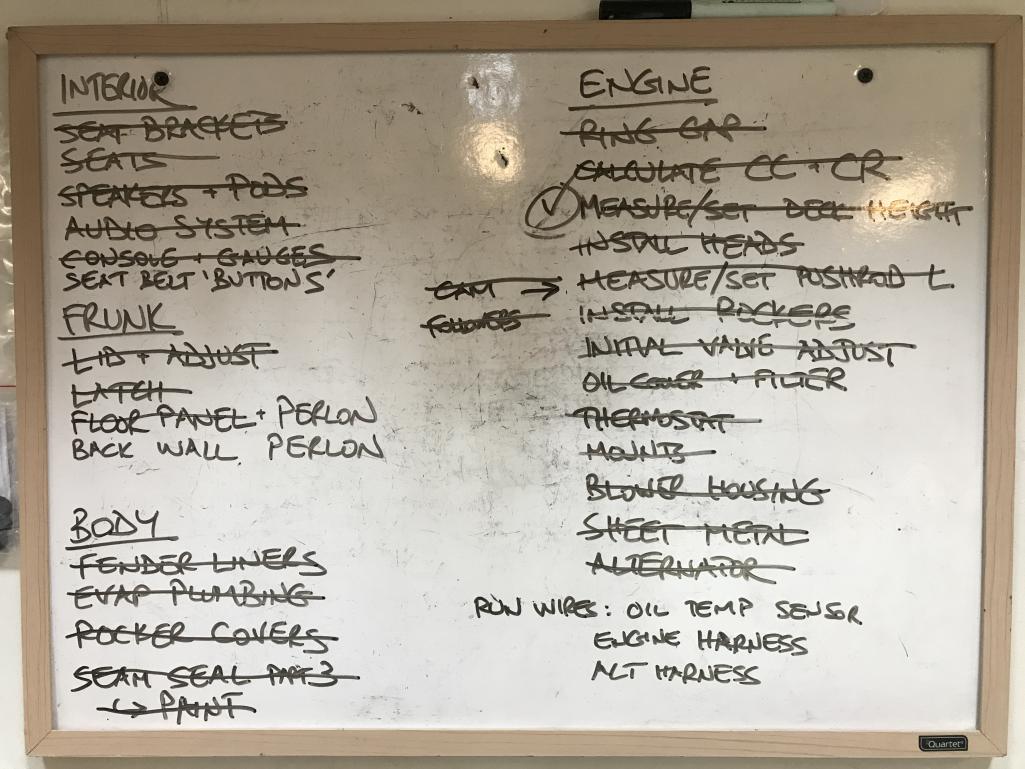 INTERIOR
SEAT BRACKETS
SEATS
SPEAKERS + PODS
AUDIO SYSTEM
CONSOLE + GAUGES
SEAT BELT 'BUTTONS'
FRUNK
LID + ADJUST
LATCH
FLOOR PANEL + PERLON
BACK WALL PERLON
BODY
FENDER LINERS
EVAP PLUMBING
ROCKER COVERS
SEAM SEAL PART 3
↳ PAINT
ENGINE
RING GAP
CALCULATE CC + CR
✓ MEASURE/SET DECK HEIGHT
INSTALL HEADS
CAM → MEASURE/SET PUSHROD L
FOLLOWERS
INSTALL ROCKERS
INITIAL VALVE ADJUST
OIL COOLER + FILTER
THERMOSTAT
MOUNTS
BLOWER HOUSING
SHEET METAL
ALTERNATOR
RUN WIRES: OIL TEMP SENSR
ENGINE HARNESS
ALT HARNESS
Quartet